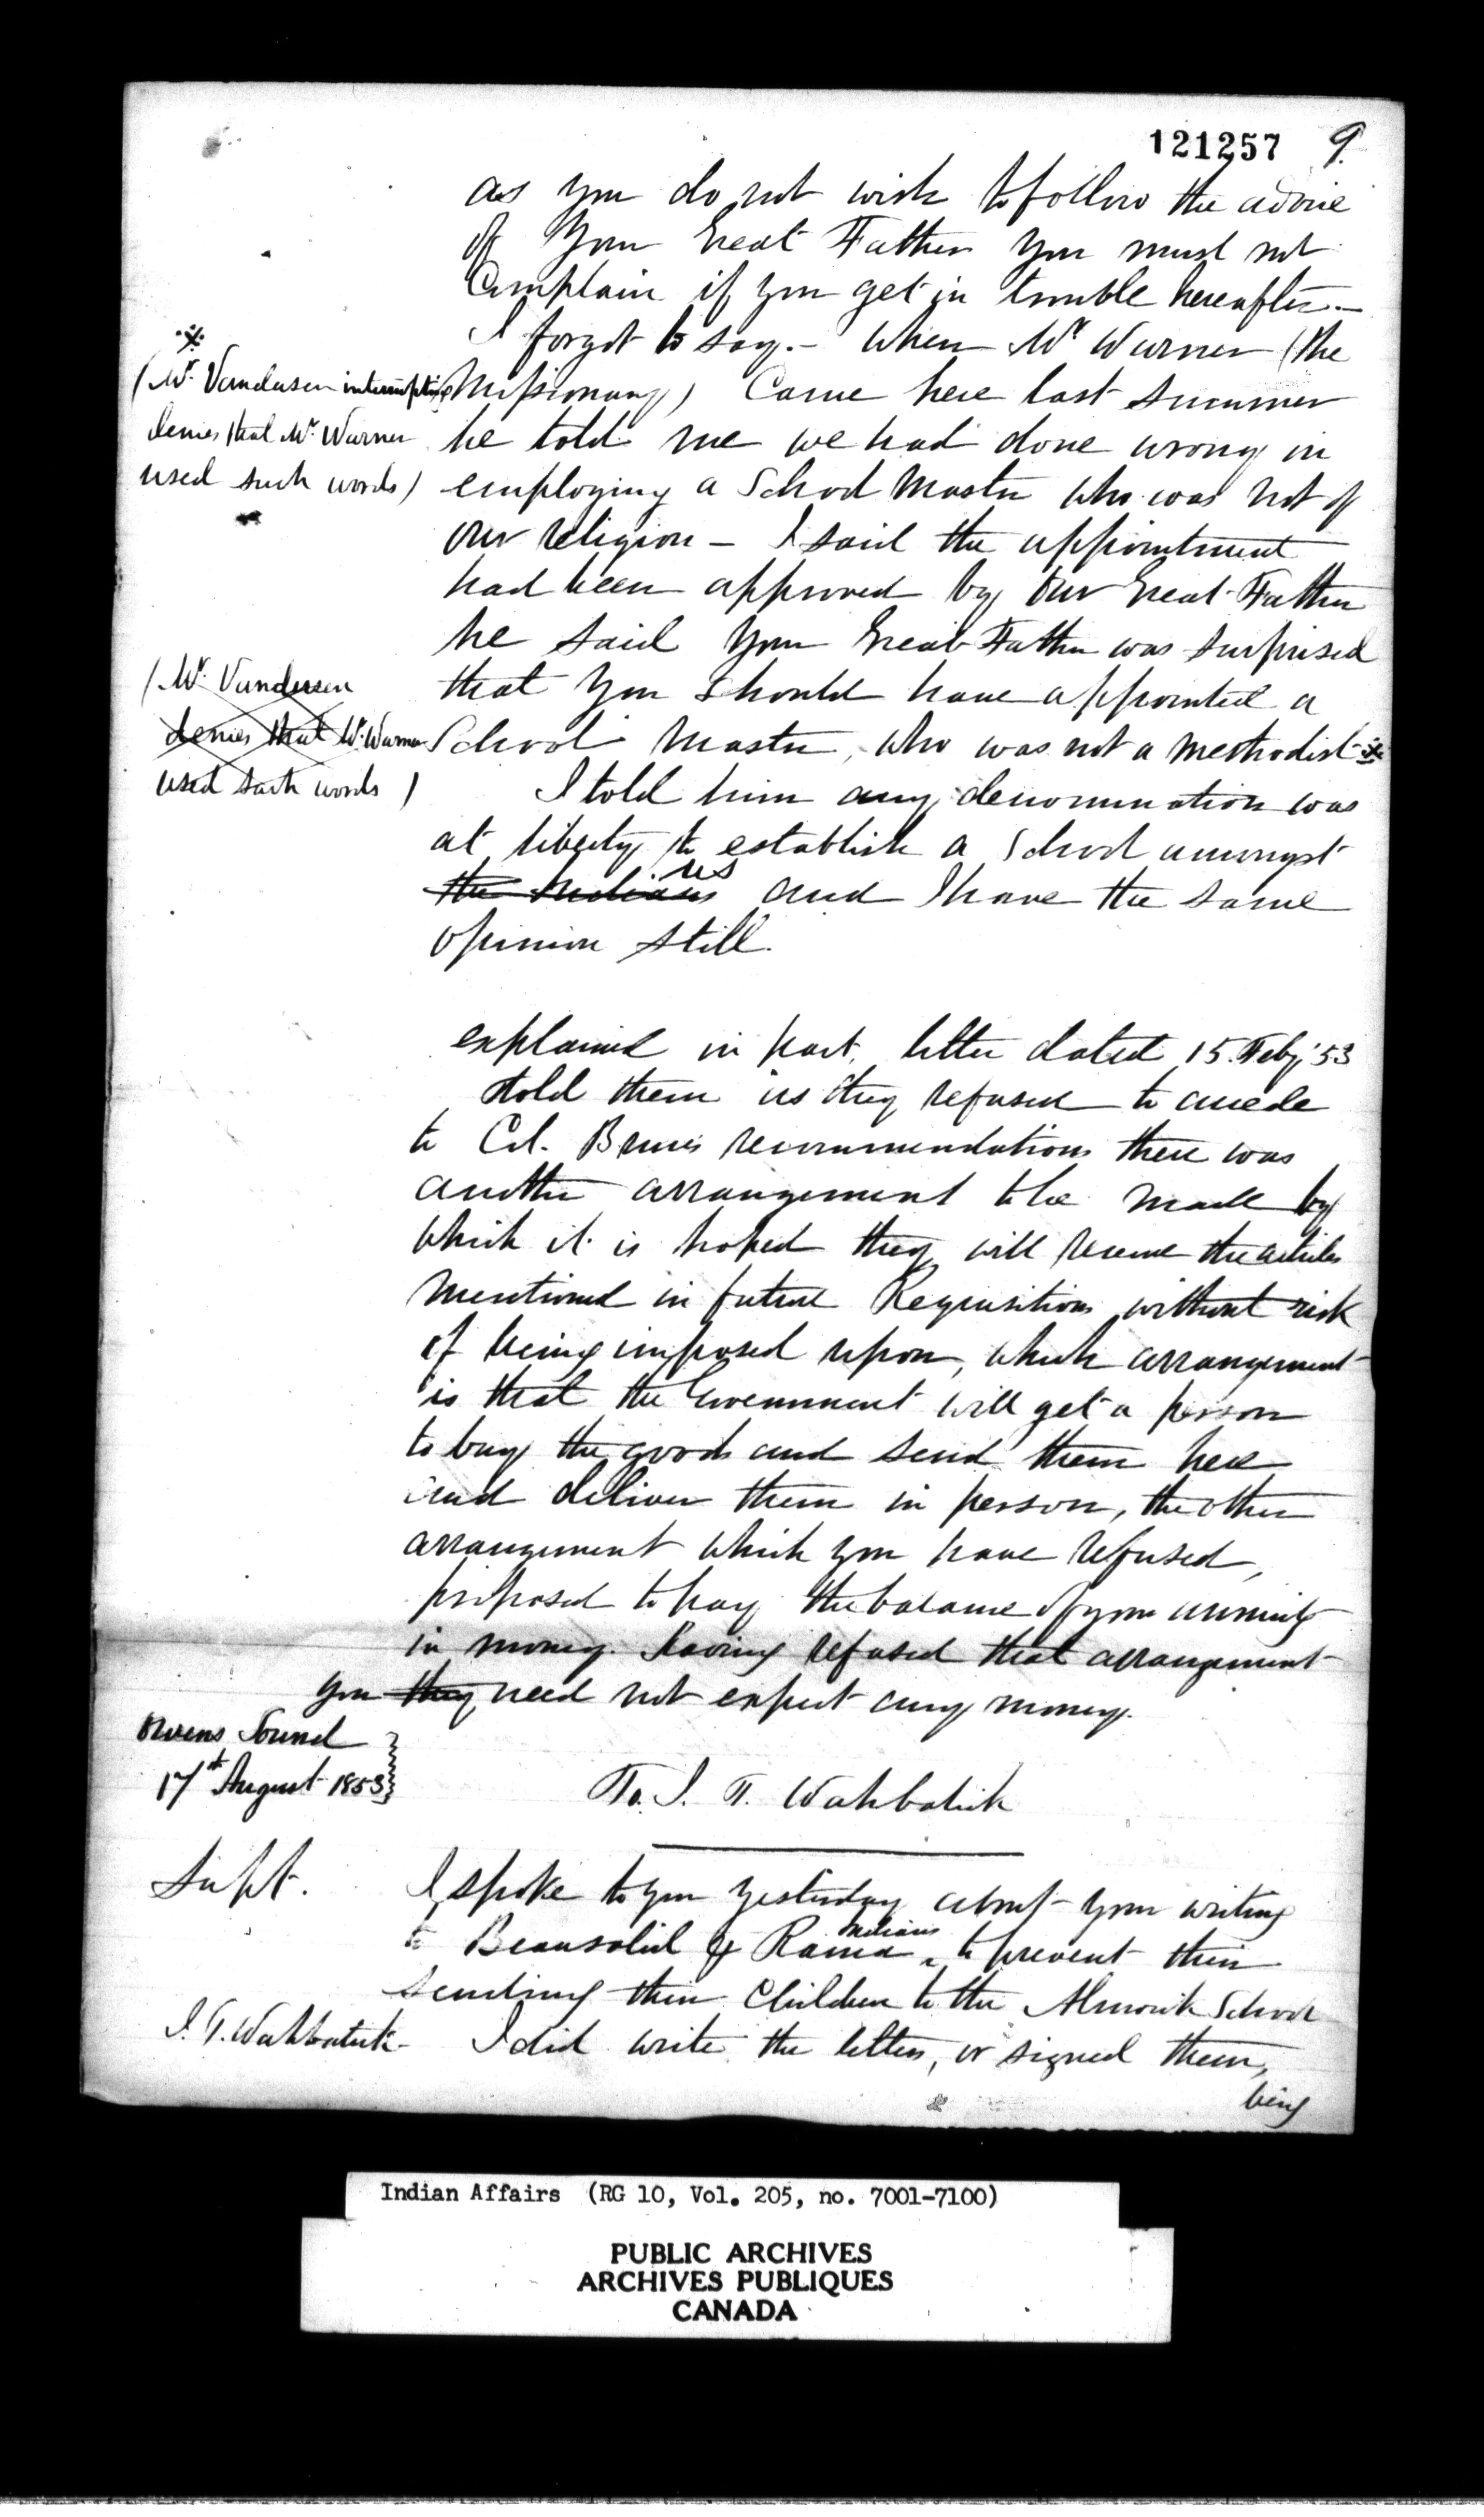 121257 9.
as you do not wish to follow the advice
of your Great Father you must not
Complain if you get in trouble hereafter.—
I forgot to say.— When Mr Warner (the
※
(Mr. Vandusen interrupting
denies that Mr. Warner
used such words)
Missionary) Came here last summer
he told me we had done wrong in
employing a School Master who was not of
our religion — I said the appointment
had been approved by our Great Father
he said your Great Father was surprised
that you should have appointed a
School Master, who was not a Methodist ※
(Mr. Vandusen
denies that Mr. Warner
used such words)
I told him any denomination was
at liberty to establish a School amongst
us
the Indians and I have the same
opinion still.
explained in part. letter dated 15. Feby '53
told them as they refused to accede
to Col. Bruce's recommendations there was
another arrangement to be made by
which it is hoped they will receive the articles
mentioned in future Requisitions without risk
of being imposed upon, which arrangement
is that the Government will get a person
to buy the goods and send them here
and deliver them in person, the other
arrangement which you have refused,
proposed to pay the balance of your annuity
in money. Having refused that arrangement
you they need not expect any money.
Owens Sound
17th August 1853
To. J. T. Wahbatick
Supt. I spoke to you yesterday about your writing
Indians
to Beausoliel & Rama ‸ to prevent their
sending their Children to the Alnwick School
J. T. Wahbatick - I did write the letters, or signed them,
being
Indian Affairs (RG 10, Vol. 205, no. 7001-7100)
PUBLIC ARCHIVES
ARCHIVES PUBLIQUES
CANADA